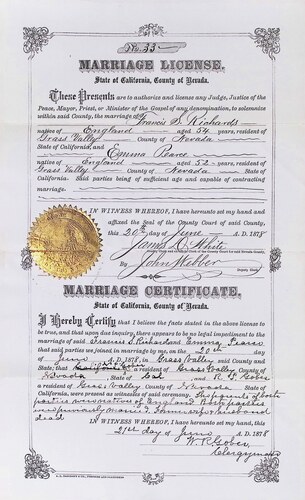 No. 33
MARRIAGE LICENSE.
State of California, County of Nevada.
These Presents are to authorize and license any Judge, Justice of the
Peace, Mayor, Priest, or Minister of the Gospel of any denomination, to solemnize
within said County, the marriage of Francis S. Richards
native of England aged 54 years, resident of
Grass Valley County of Nevada
State of California, and
Emma Pearce
native of England aged 52 years, resident of
Grass Valley County of Nevada State of
California. Said parties being of sufficient age and capable of contracting
marriage.
IN WITNESS WHEREOF, I have hereunto set my hand and
affixed the Seal of the County Court of said County,
this 20th day of June A. D. 1878
James D. White
By John Webber
Deputy Clerk
MARRIAGE CERTIFICATE.
State of California, County of Nevada.
I Hereby Certify that I believe the facts stated in the above license
to be true, and that upon due inquiry there appears to be no legal impediment to the
marriage of said Francis S. Richards and Emma Pearce
that said parties were joined in marriage by me, on the 20th day
of June A. D. 1878, in Grass Valley, said County and
State; that a resident of Grass Valley County
of Nevada and R. P. Gober
a resident of Grass Valley, County of Nevada State of
California, were present as witnesses of said ceremony.
parties were natives of England Both parties
previously married
dead
IN WITNESS WHEREOF, I have hereunto set my hand, this
21st day of June A. D. 1878
W. R. Gober
Clergyman